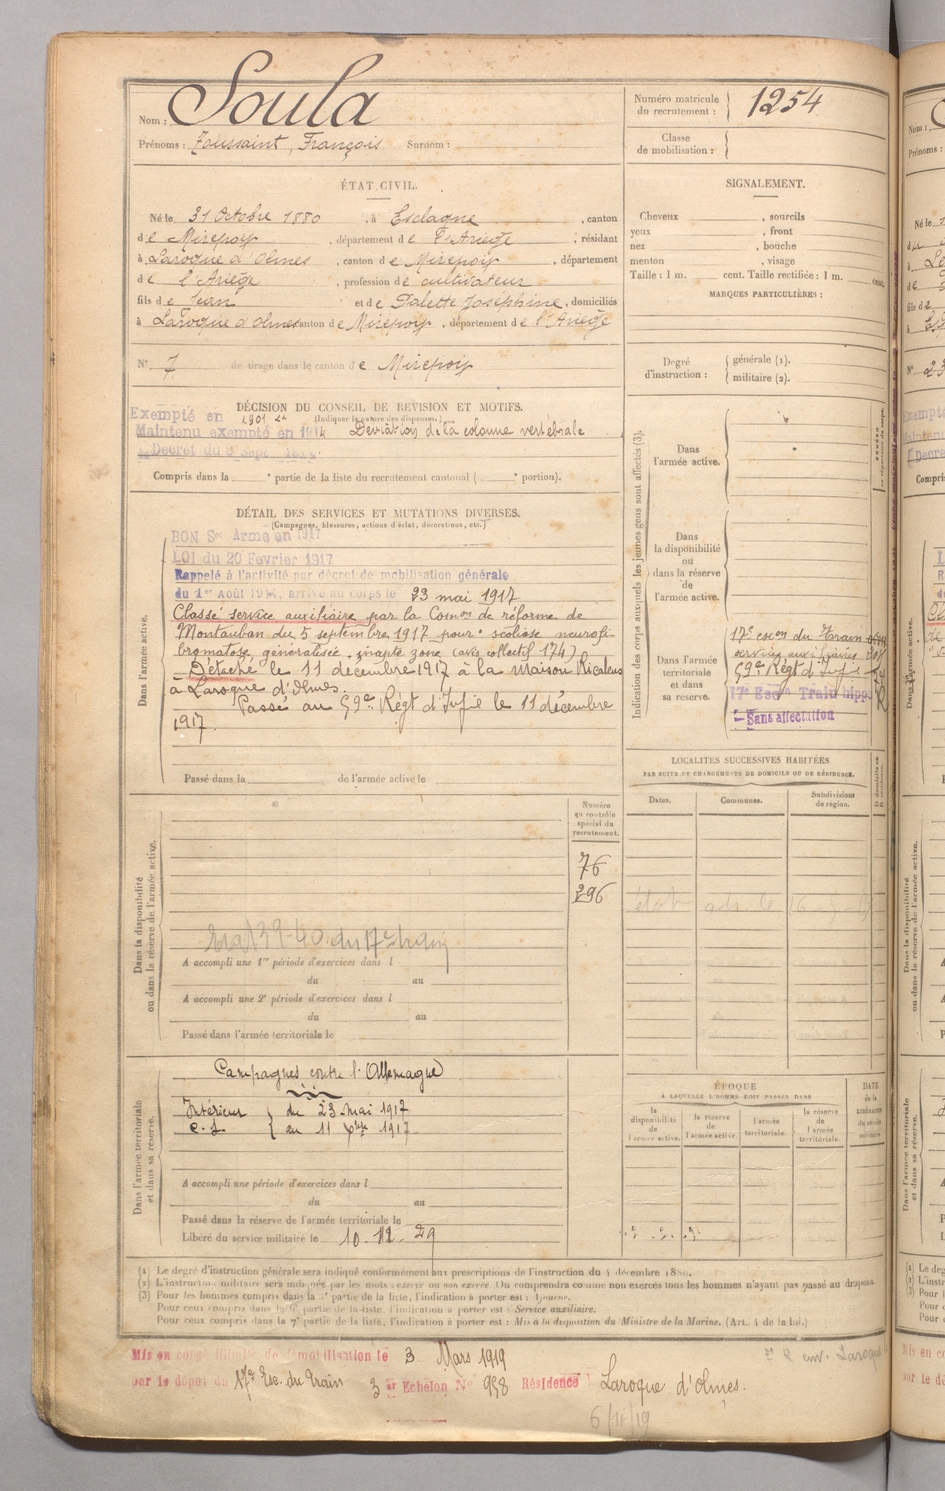 Nom : Soula
Prénoms : Toussaint, François Surnom :
Numéro matricule du recrutement : 1254
Classe de mobilisation :
ÉTAT CIVIL.
Né le 31 Octobre 1880, à Esclagne, canton
de Mirepoix, département de l'Ariège, résidant
à Laroque d'Olmes, canton de Mirepoix, département
de l'Ariège, profession de cultivateur
fils de Jean et de Galette Joséphine, domiciliés
à Laroque d'Olmes canton de Mirepoix, département de l'Ariège
N° 7 de tirage dans le canton de Mirepoix
SIGNALEMENT.
Cheveux , sourcils
yeux , front
nez , bouche
menton , visage
Taille : 1 m. cent. Taille rectifiée : 1 m. cent.
MARQUES PARTICULIÈRES :
Degré d'instruction : générale (1). militaire (2).
DÉCISION DU CONSEIL DE REVISION ET MOTIFS.
(Indiquer la nature des dispenses.)
Exempté en 1901
Maintenu exempté en 1914 Déviation de la colonne vertébrale
Décret du 9 Sept.
Compris dans la ° partie de la liste du recrutement cantonal ( ° portion).
DÉTAIL DES SERVICES ET MUTATIONS DIVERSES.
(Campagnes, blessures, actions d'éclat, décorations, etc.)
Dans l'armée active.
BON Sce Armé en 1917
LOI du 20 Février 1917
Rappelé à l'activité par décret de mobilisation générale
du 1er Août 1914, arrivé au corps le 23 mai 1917
Classé service auxiliaire par la Comon de réforme de
Montauban du 5 septembre 1917 pour "scoliose neurofi
bromatose généralisée inapte zone (avis collectif 174)
Détaché le 11 décembre 1917 à la maison Ricalens
à Laroque d'Olmes.
Passé au 59e Régt d'Infie le 11 décembre
1917.
Passé dans la de l'armée active le
Indication des corps auxquels les jeunes gens sont affectés (3).
Dans l'armée active.
Dans la disponibilité ou dans la réserve de l'armée active.
Dans l'armée territoriale et dans sa réserve.
17e escon du Train
service auxiliaire
59e Régt d'Infie
17e Escon Train hippo
Sans affectation
LOCALITÉS SUCCESSIVES HABITÉES
PAR SUITE DE CHANGEMENTS DE DOMICILE OU DE RÉSIDENCE.
Dates. Communes. Subdivisions de région.
Dans la disponibilité ou dans la réserve de l'armée active.
Numéro au contrôle spécial du recrutement.
76
296
A accompli une 1re période d'exercices dans l
du au
A accompli une 2e période d'exercices dans l
du au
Passé dans l'armée territoriale le
Dans l'armée territoriale et dans sa réserve.
Campagnes contre l'Allemagne
Intérieur du 23 mai 1917
C.S. au 11 Xbre 1917
A accompli une période d'exercices dans l
du au
Passé dans la réserve de l'armée territoriale le
Libéré du service militaire le 10-11-29
ÉPOQUE
A LAQUELLE L'HOMME DOIT PASSER DANS
la disponibilité de l'armée active. la réserve de l'armée active. l'armée territoriale. la réserve de l'armée territoriale.
DATE de la LIBÉRATION du service militaire.
(1) Le degré d'instruction générale sera indiqué conformément aux prescriptions de l'instruction du 4 décembre 1889.
(2) L'instruction militaire sera indiquée par les mots : exercé ou non exercé. On comprendra comme non exercés tous les hommes n'ayant pas passé au drapeau.
(3) Pour les hommes compris dans la 5e partie de la liste, l'indication à porter est : Ajourné.
Pour ceux compris dans la 6e partie de la liste, l'indication à porter est : Service auxiliaire.
Pour ceux compris dans la 7e partie de la liste, l'indication à porter est : Mis à la disposition du Ministre de la Marine. (Art. 4 de la loi.)
Mis en congé illimité de démobilisation le 3 Mars 1919
par le dépôt du 17e Esc. du Train 3 Echelon N° 958 Résidence Laroque d'Olmes.